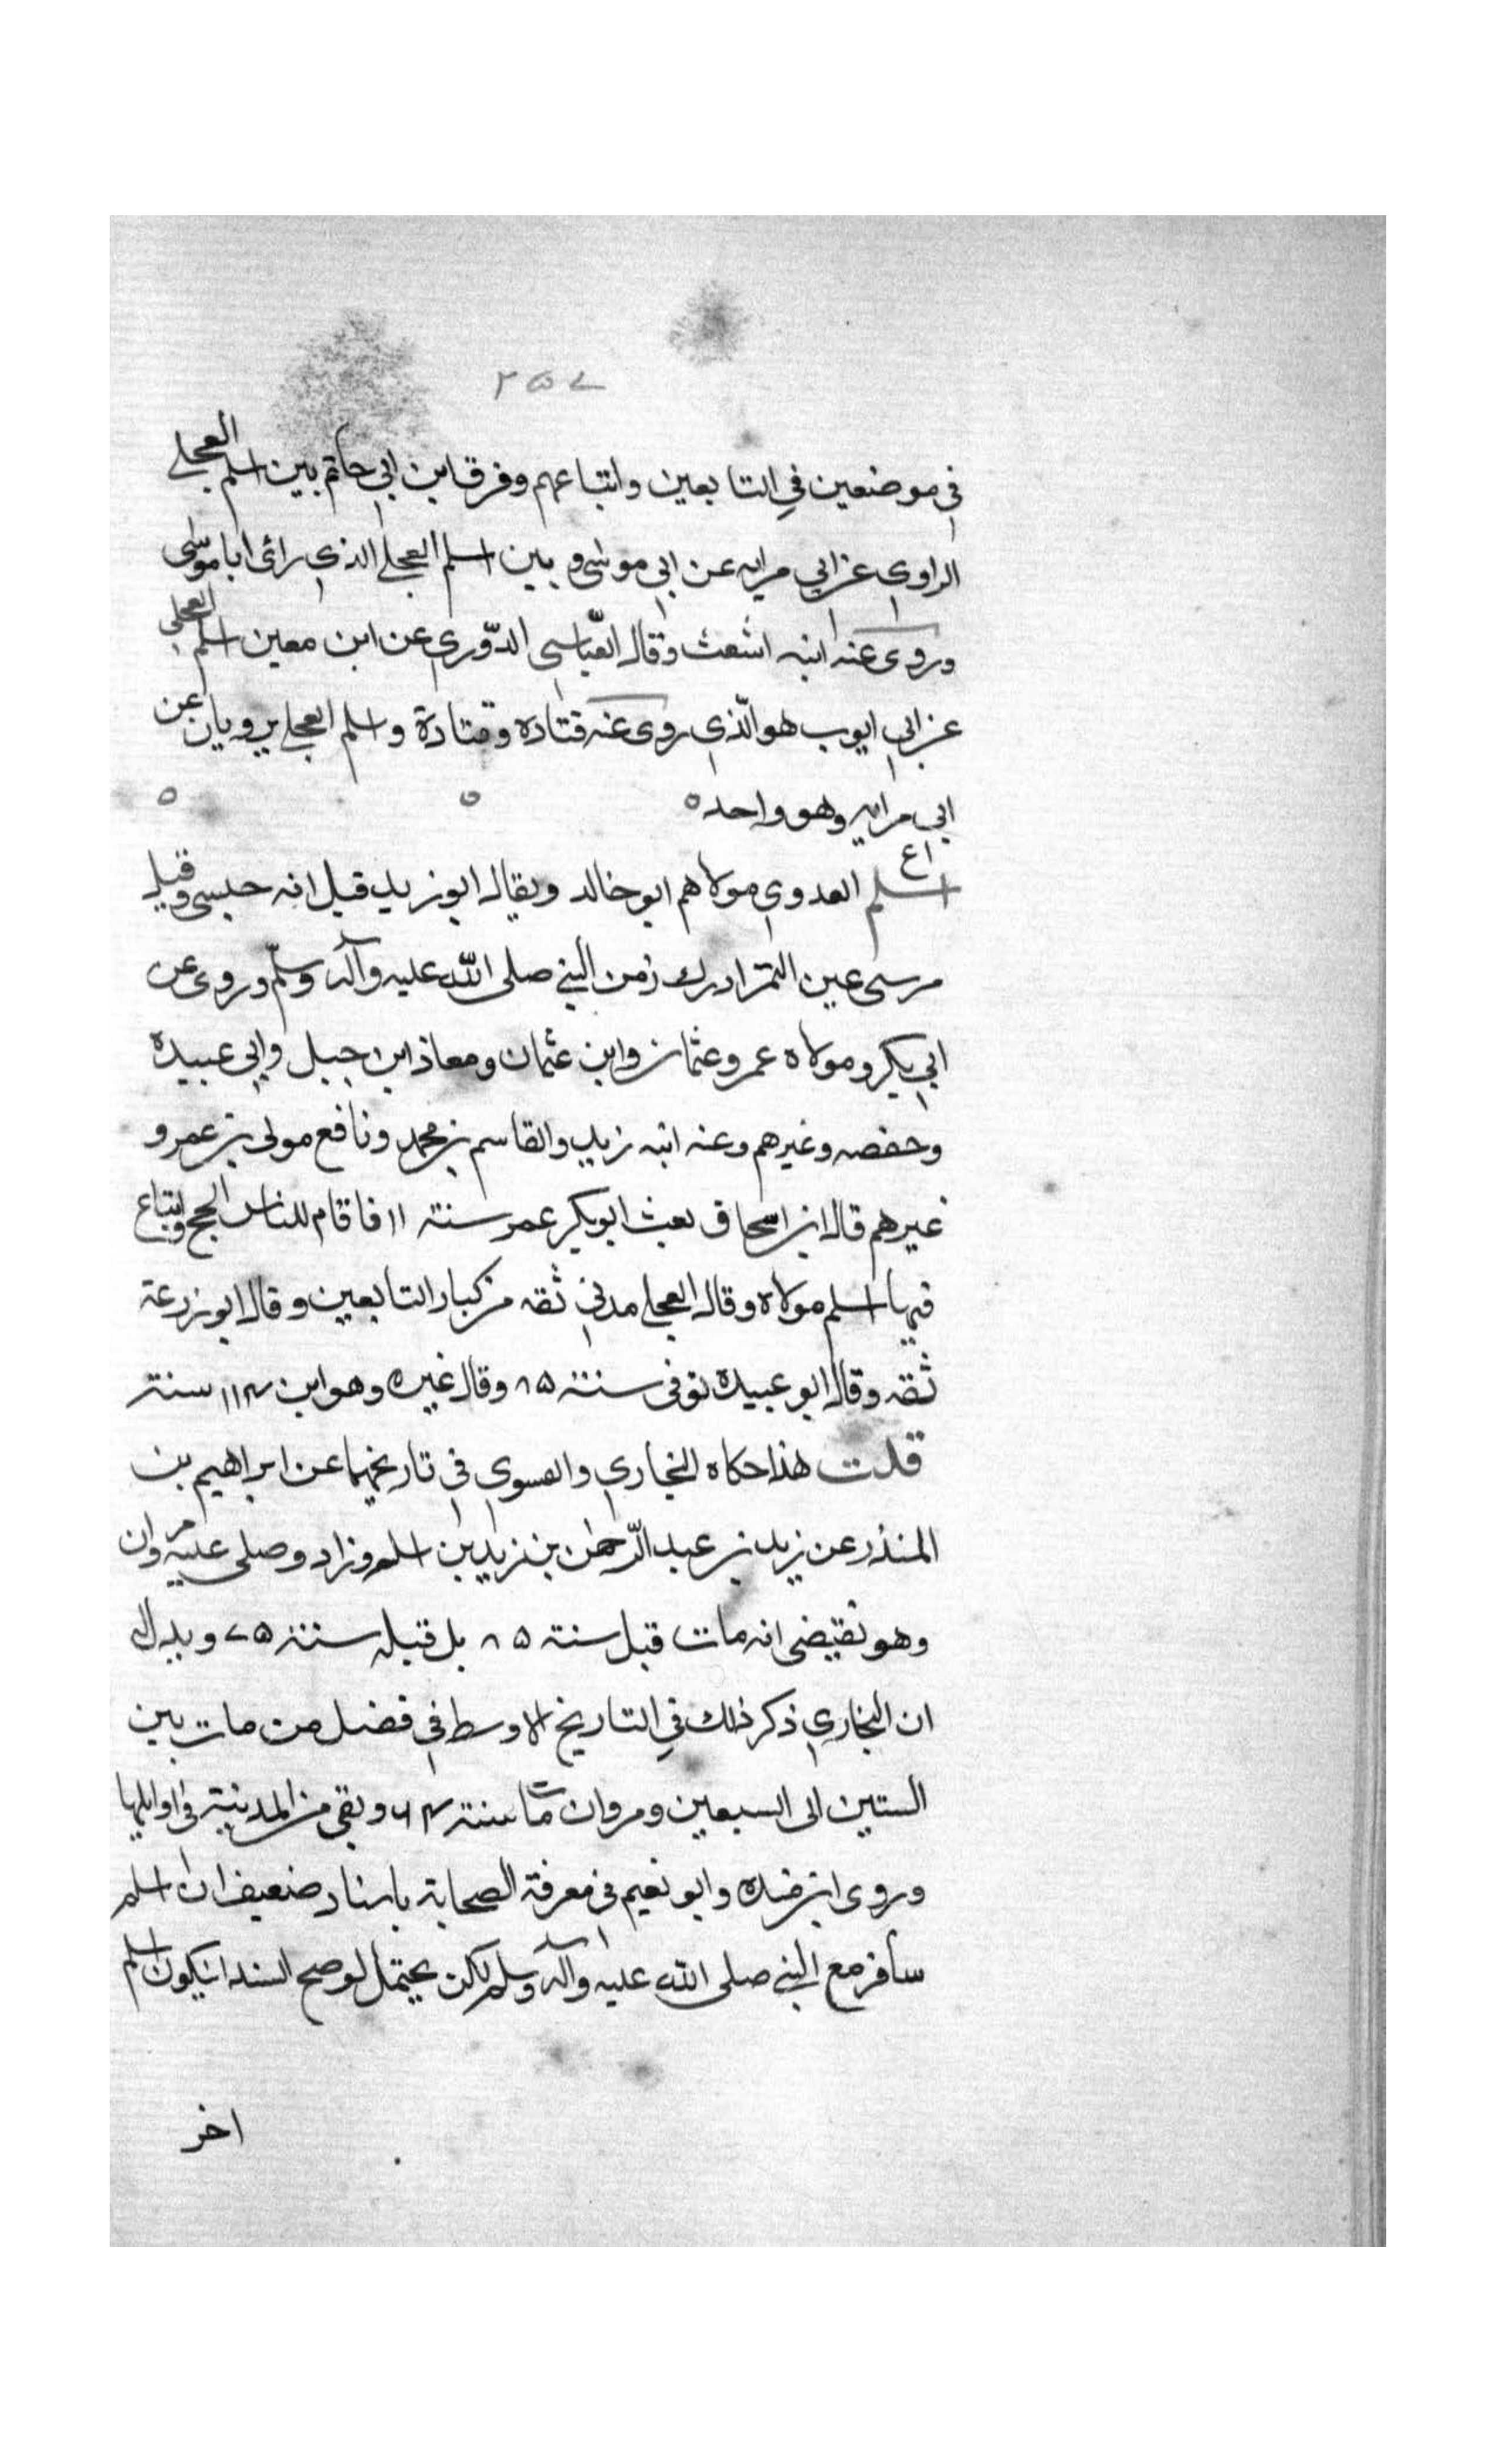 ٢٥٧
في موضعين في التابعين واتباعهم وفرق ابن ابي حاتم بين اسلم العجلي
الراوي عن ابي مرايه عن ابي موسى وبين اسلم العجلي الذي رأى ابا موسى
وروى عنه ابنه اشعث وقال العباسي الدوري عن ابن معين اسلم العجلي
عن ابي ايوب هو الذي روى عنه قتاده وقتادة واسلم العجلي يرويان عن
ابي مرايه وهو واحد ه ه ه
ع اسلم العدوي مولاهم ابو خالد ويقال ابو زيد قيل انه حبسي وقيل
من سبي عين التمر ادرك زمن النبي صلى الله عليه وآله وسلم وروى عن
ابي بكر ومولاه عمر وعثمان وابن عثمان ومعاذ ابن جبل وابي عبيدة
وحفصه وغيرهم وعنه ابنه زيد والقاسم بن محمد ونافع مولى بن عمر و
غيرهم قال ابن اسحاق بعث ابو بكر عمر سنة ١١ فاقام للناس الحج وابتاع
فيها اسلم مولاه وقال العجلي مدني ثقه من كبار التابعين وقال ابو زرعة
ثقه وقال ابو عبيدة توفى سنة ٨٥ وقال غيره وهو ابن ١١٤ سنة
قلت هذا حكاه البخاري والفسوي في تاريخهما عن ابراهيم بن
المنذر عن زيد بن عبد الرحمن بن زيد بن اسلم وزاد وصلى عليه مروان
وهو تقيضي انه مات قبل سنة ٨٥ بل قبله سنة ٧٥ ويدل
ان البخاري ذكر ذلك في التاريخ الاوسط في فضل من مات بين
الستين الى السبعين ومروان مات سنة ٦٤ وبقى من المدينة في اوايلها
وروى ابن منده وابو نعيم في معرفة الصحابة باسناد ضعيف ان اسلم
سافر مع النبي صلى الله عليه وآله وسلم لكن يحتمل لو صح السند ان يكون اسلم
اخر